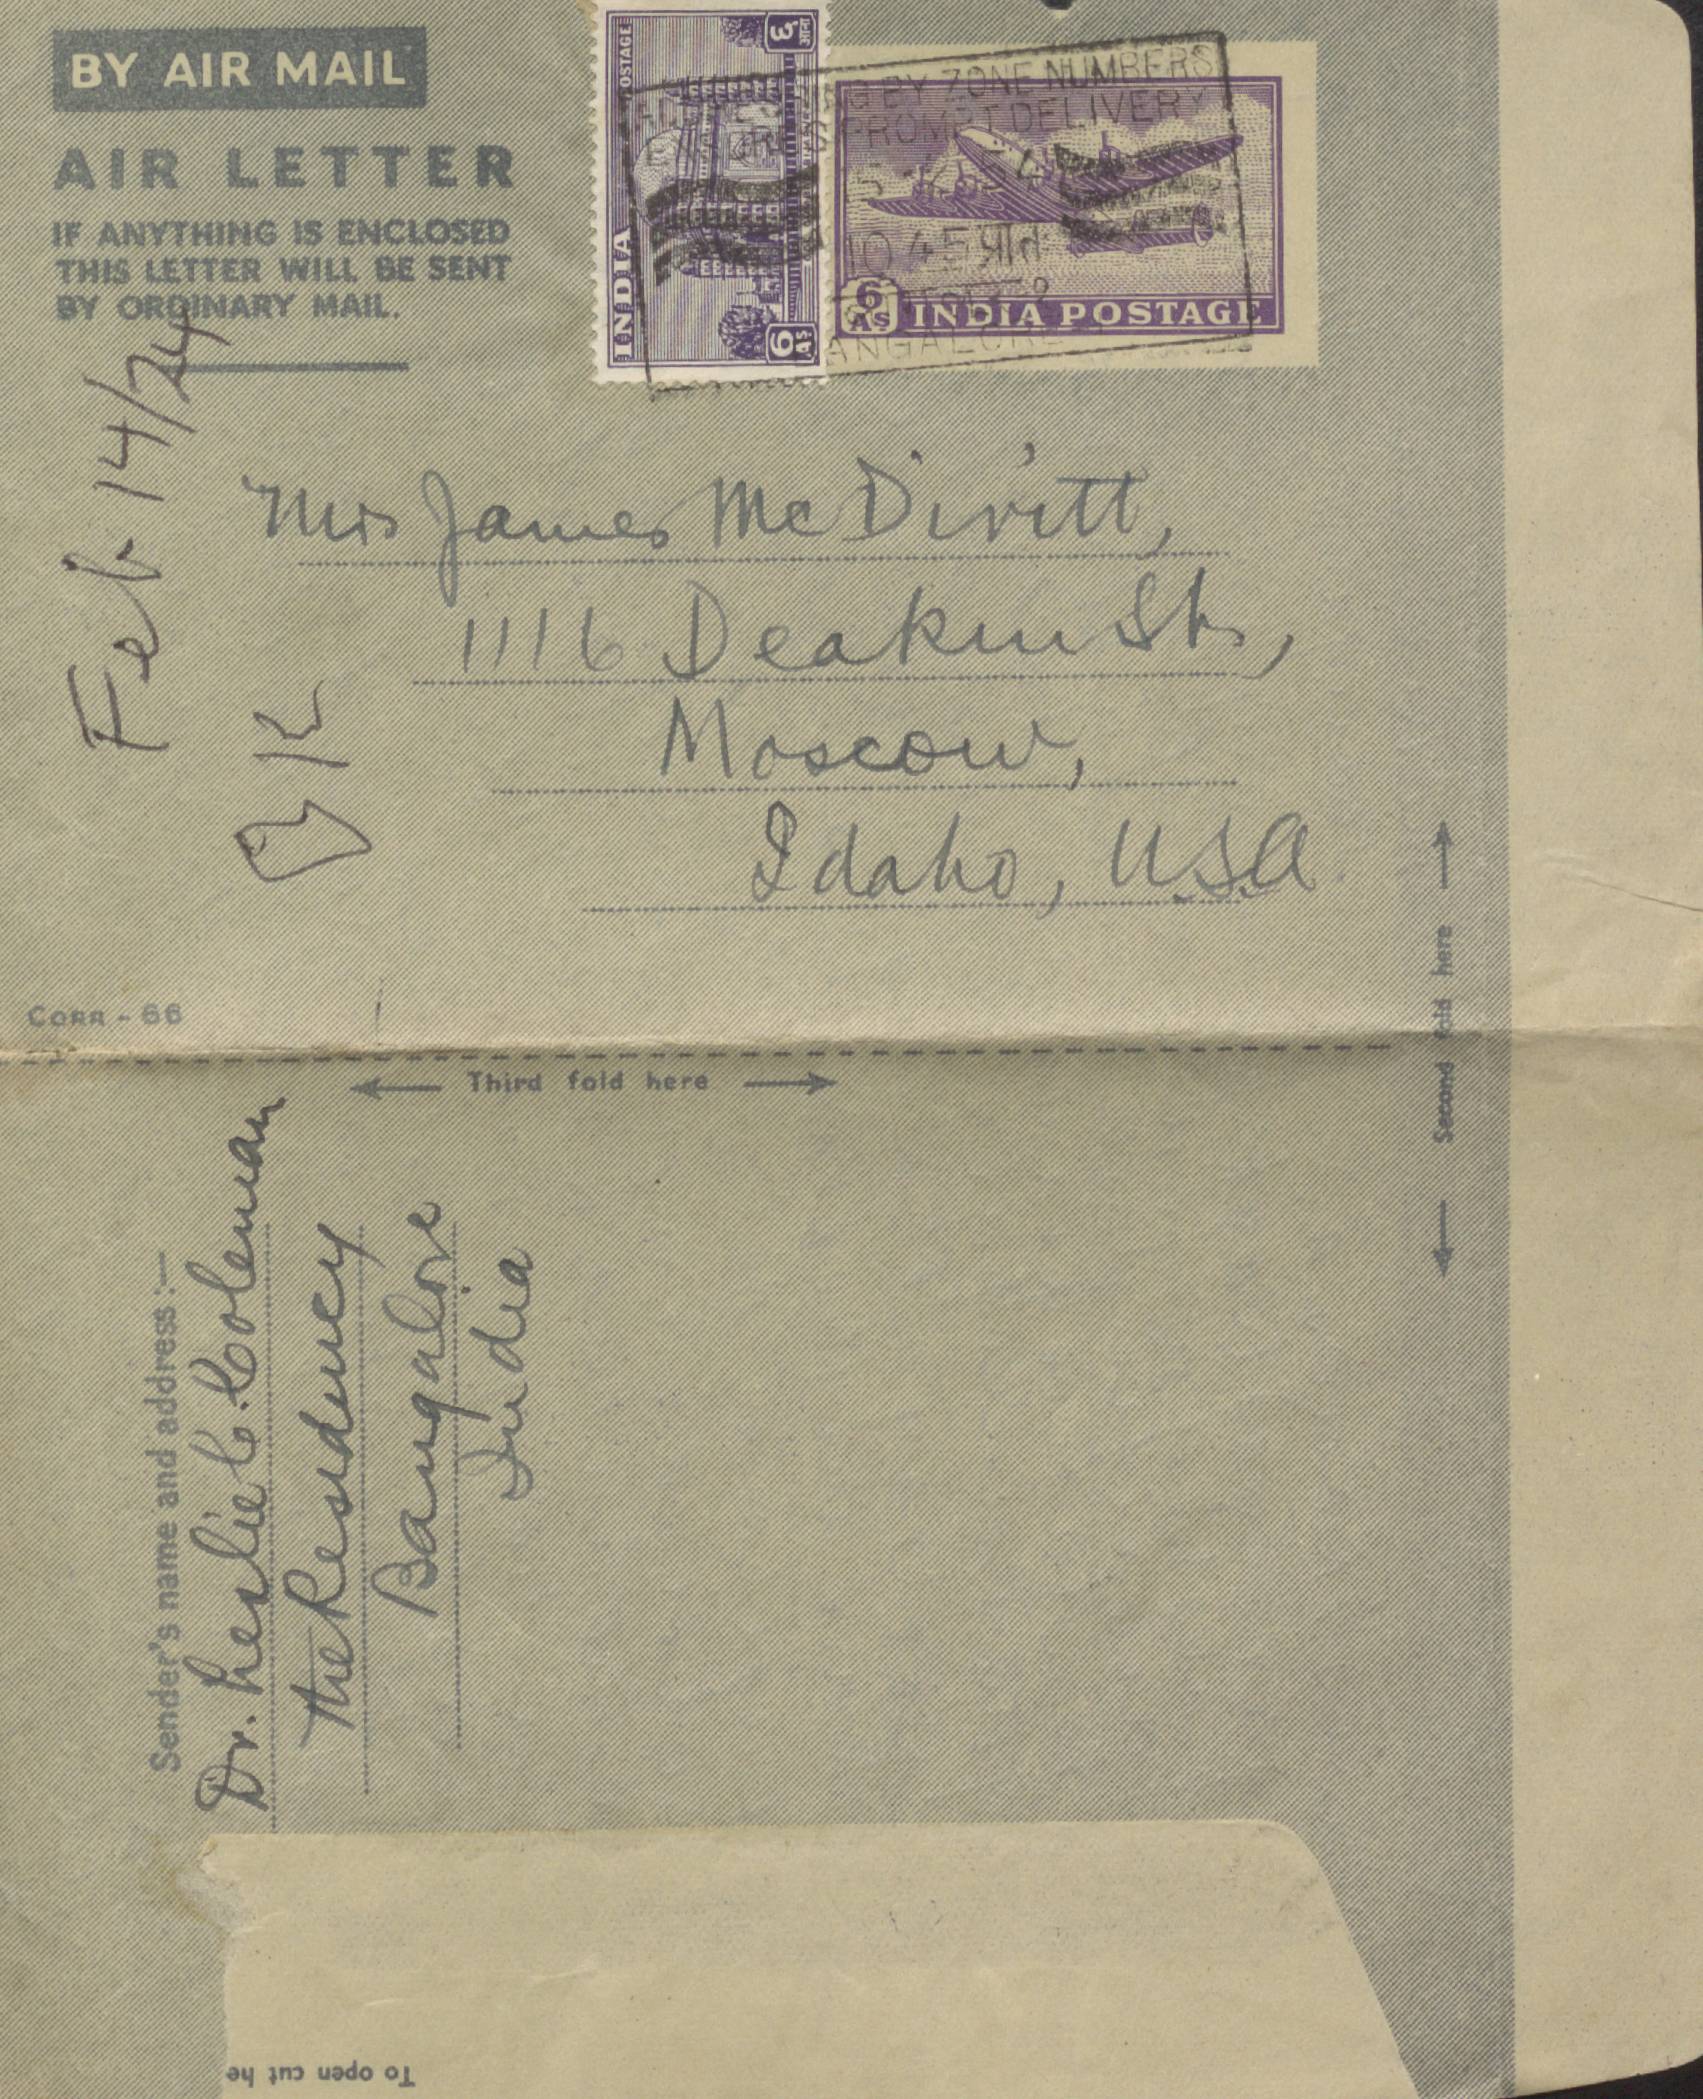 BY AIR MAIL
AIR LETTER
IF ANYTHING IS ENCLOSED
THIS LETTER WILL BE SENT
BY ORDINARY MAIL.
POSTAGE
INDIA
६ आना
6 As
BY ZONE NUMBERS
PROMPT DELIVERY
10 45 प्रातः
ANGALORE
6 As INDIA POSTAGE
Feb 14/24
Mrs James McDivitt,
1116 Deakin St.,
Moscow,
Idaho, USA.
CORR - 66
Third fold here
Second fold here
Sender's name and address:—
Dr. Leslie C. Coleman
The Residency
Bangalore
India
To open cut he